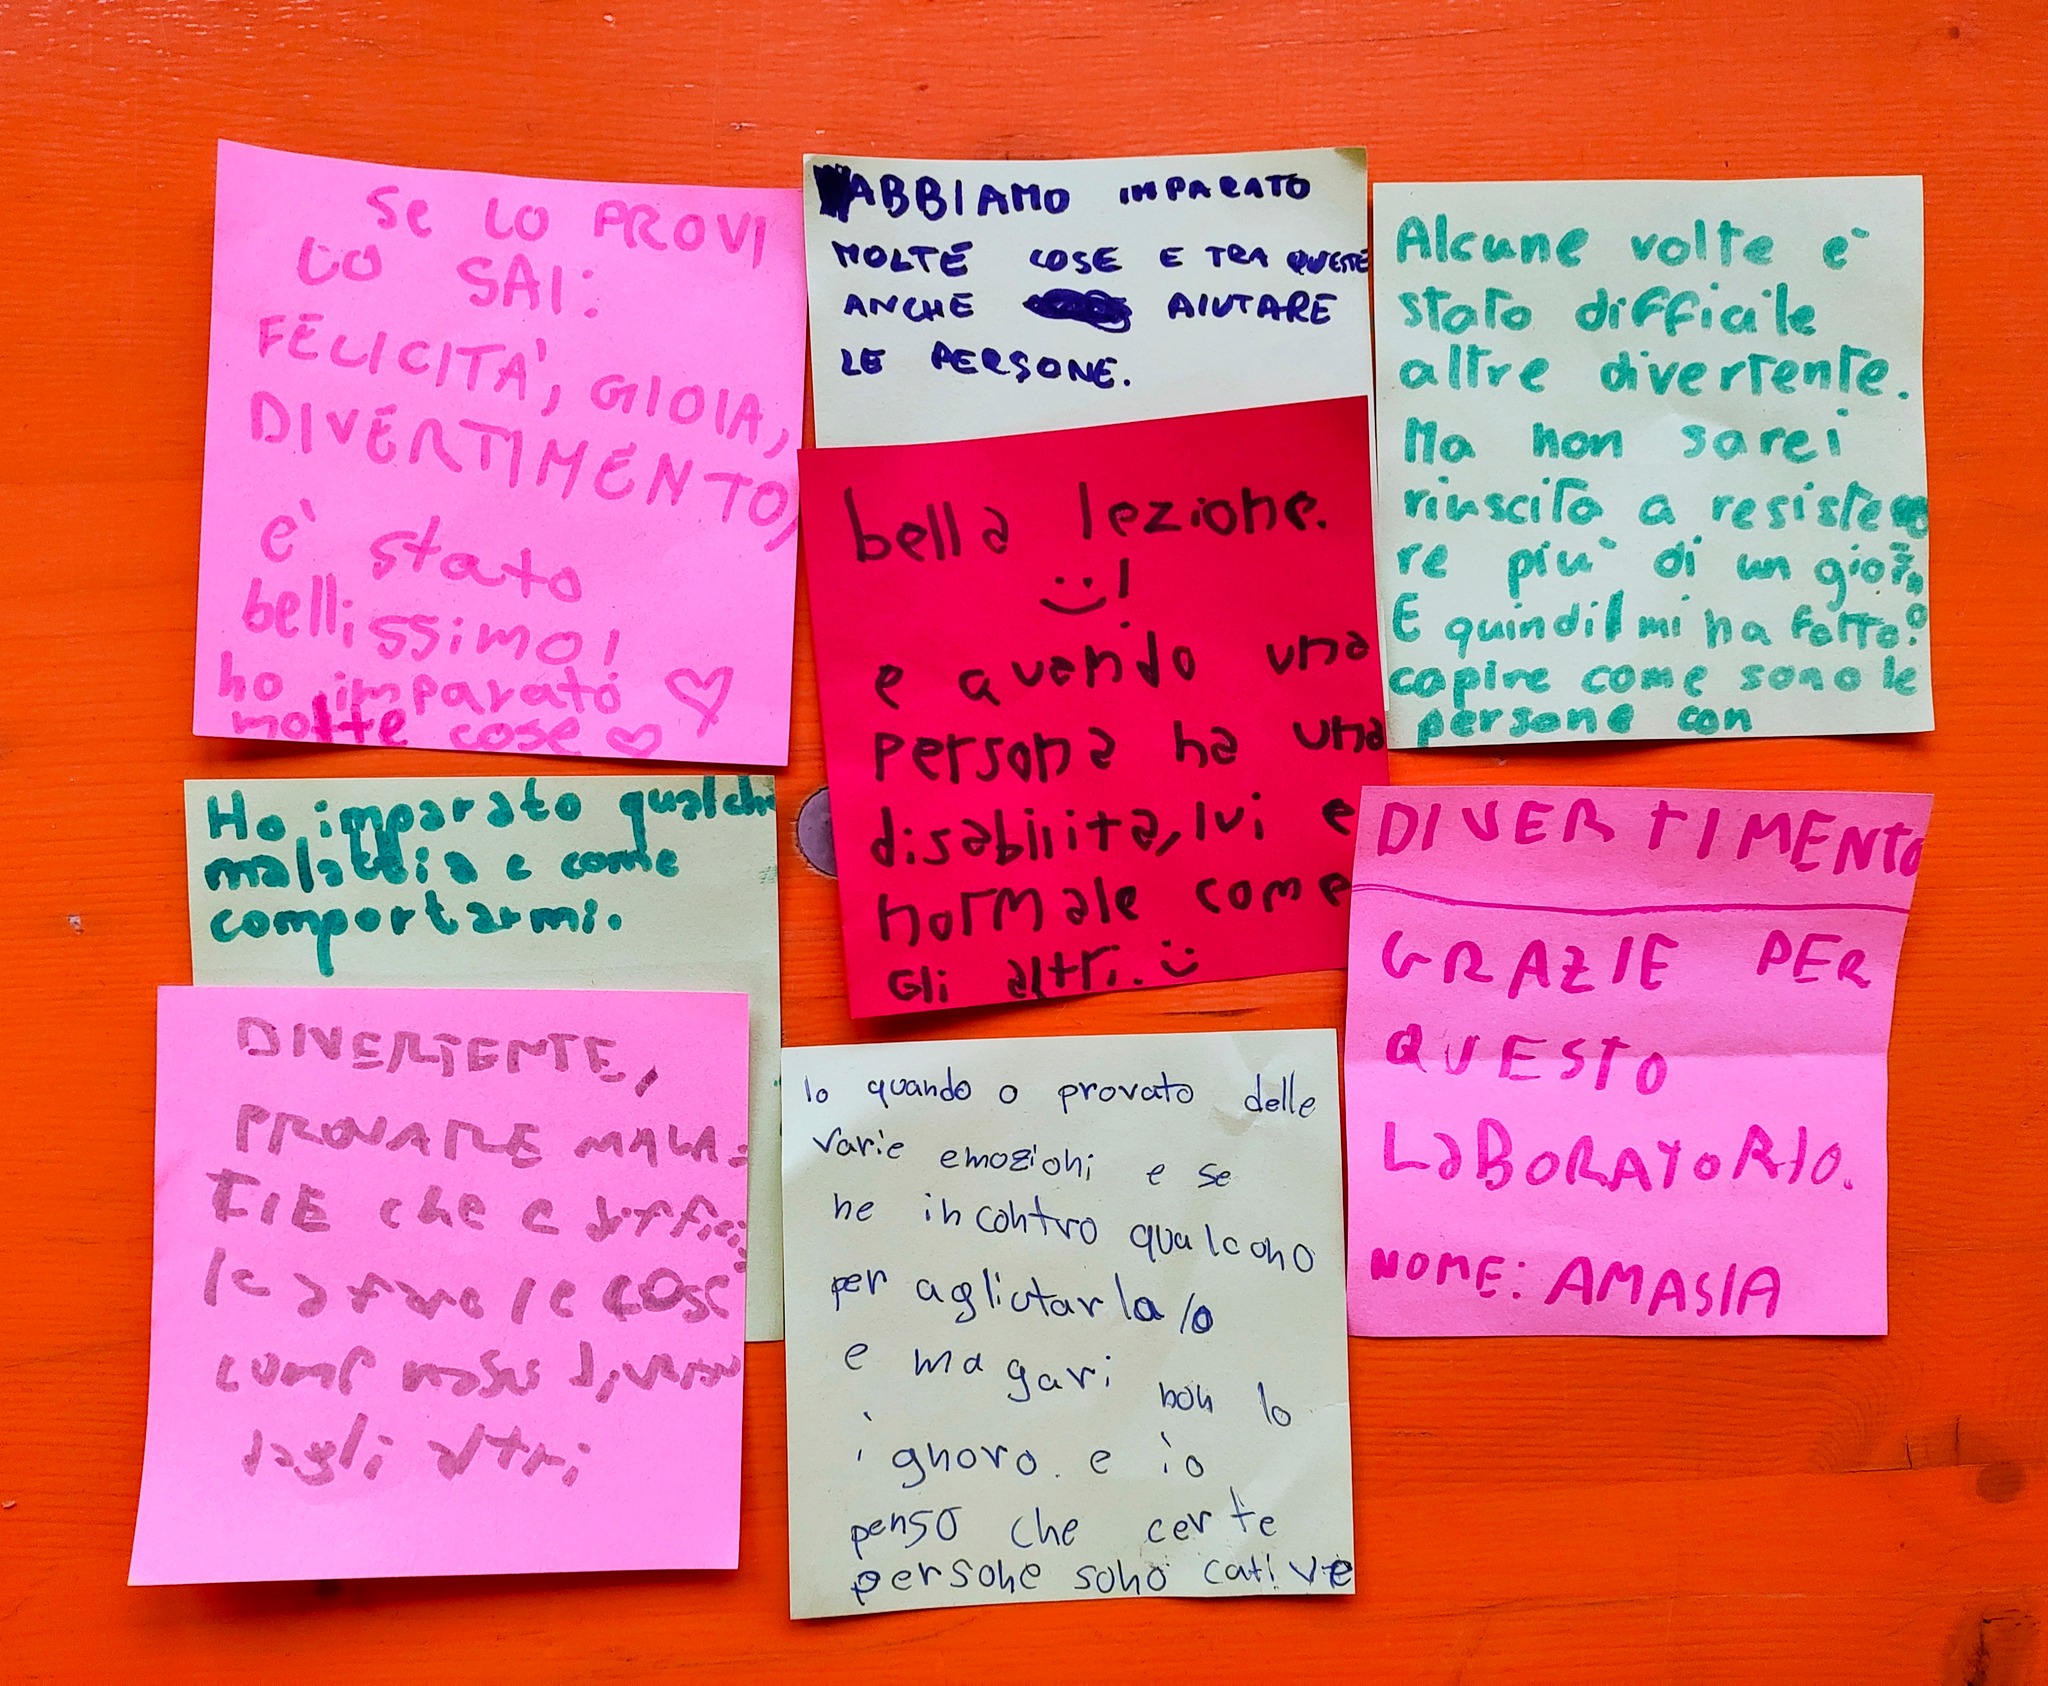 Se LO PROVI
LO SAI:
FELICITÀ, GIOIA,
DIVERTIMENTO,
e' stato
bellissimo!
ho imparato
molte cose
ABBIAMO IMPARATO
MOLTE COSE E TRA QUESTE
ANCHE AIUTARE
LE PERSONE.
Alcune volte è
stato difficile
altre divertente.
Ma non sarei
riuscito a resiste
re più di un gior
E quindi mi ha fatto
capire come sono le
persone con
bella lezione.
:)!
e quando una
persona ha una
disabilità, lui e
normale come
Gli altri. :)
Ho imparato qualche
malattia e come
comportarmi.
DIVERTIMENTO
GRAZIE PER
QUESTO
LaBORATORIO.
NOME: AMASIA
DIVERTENTE,
PROVARE MALA-
TIE che e diffici
le a fare le cose
come
dagli altri
Io quando o provato delle
varie emozioni e se
ne incontro qualcono
per agliutarla/o
e magari non lo
ignoro. e io
penso che certe
persone sono cative